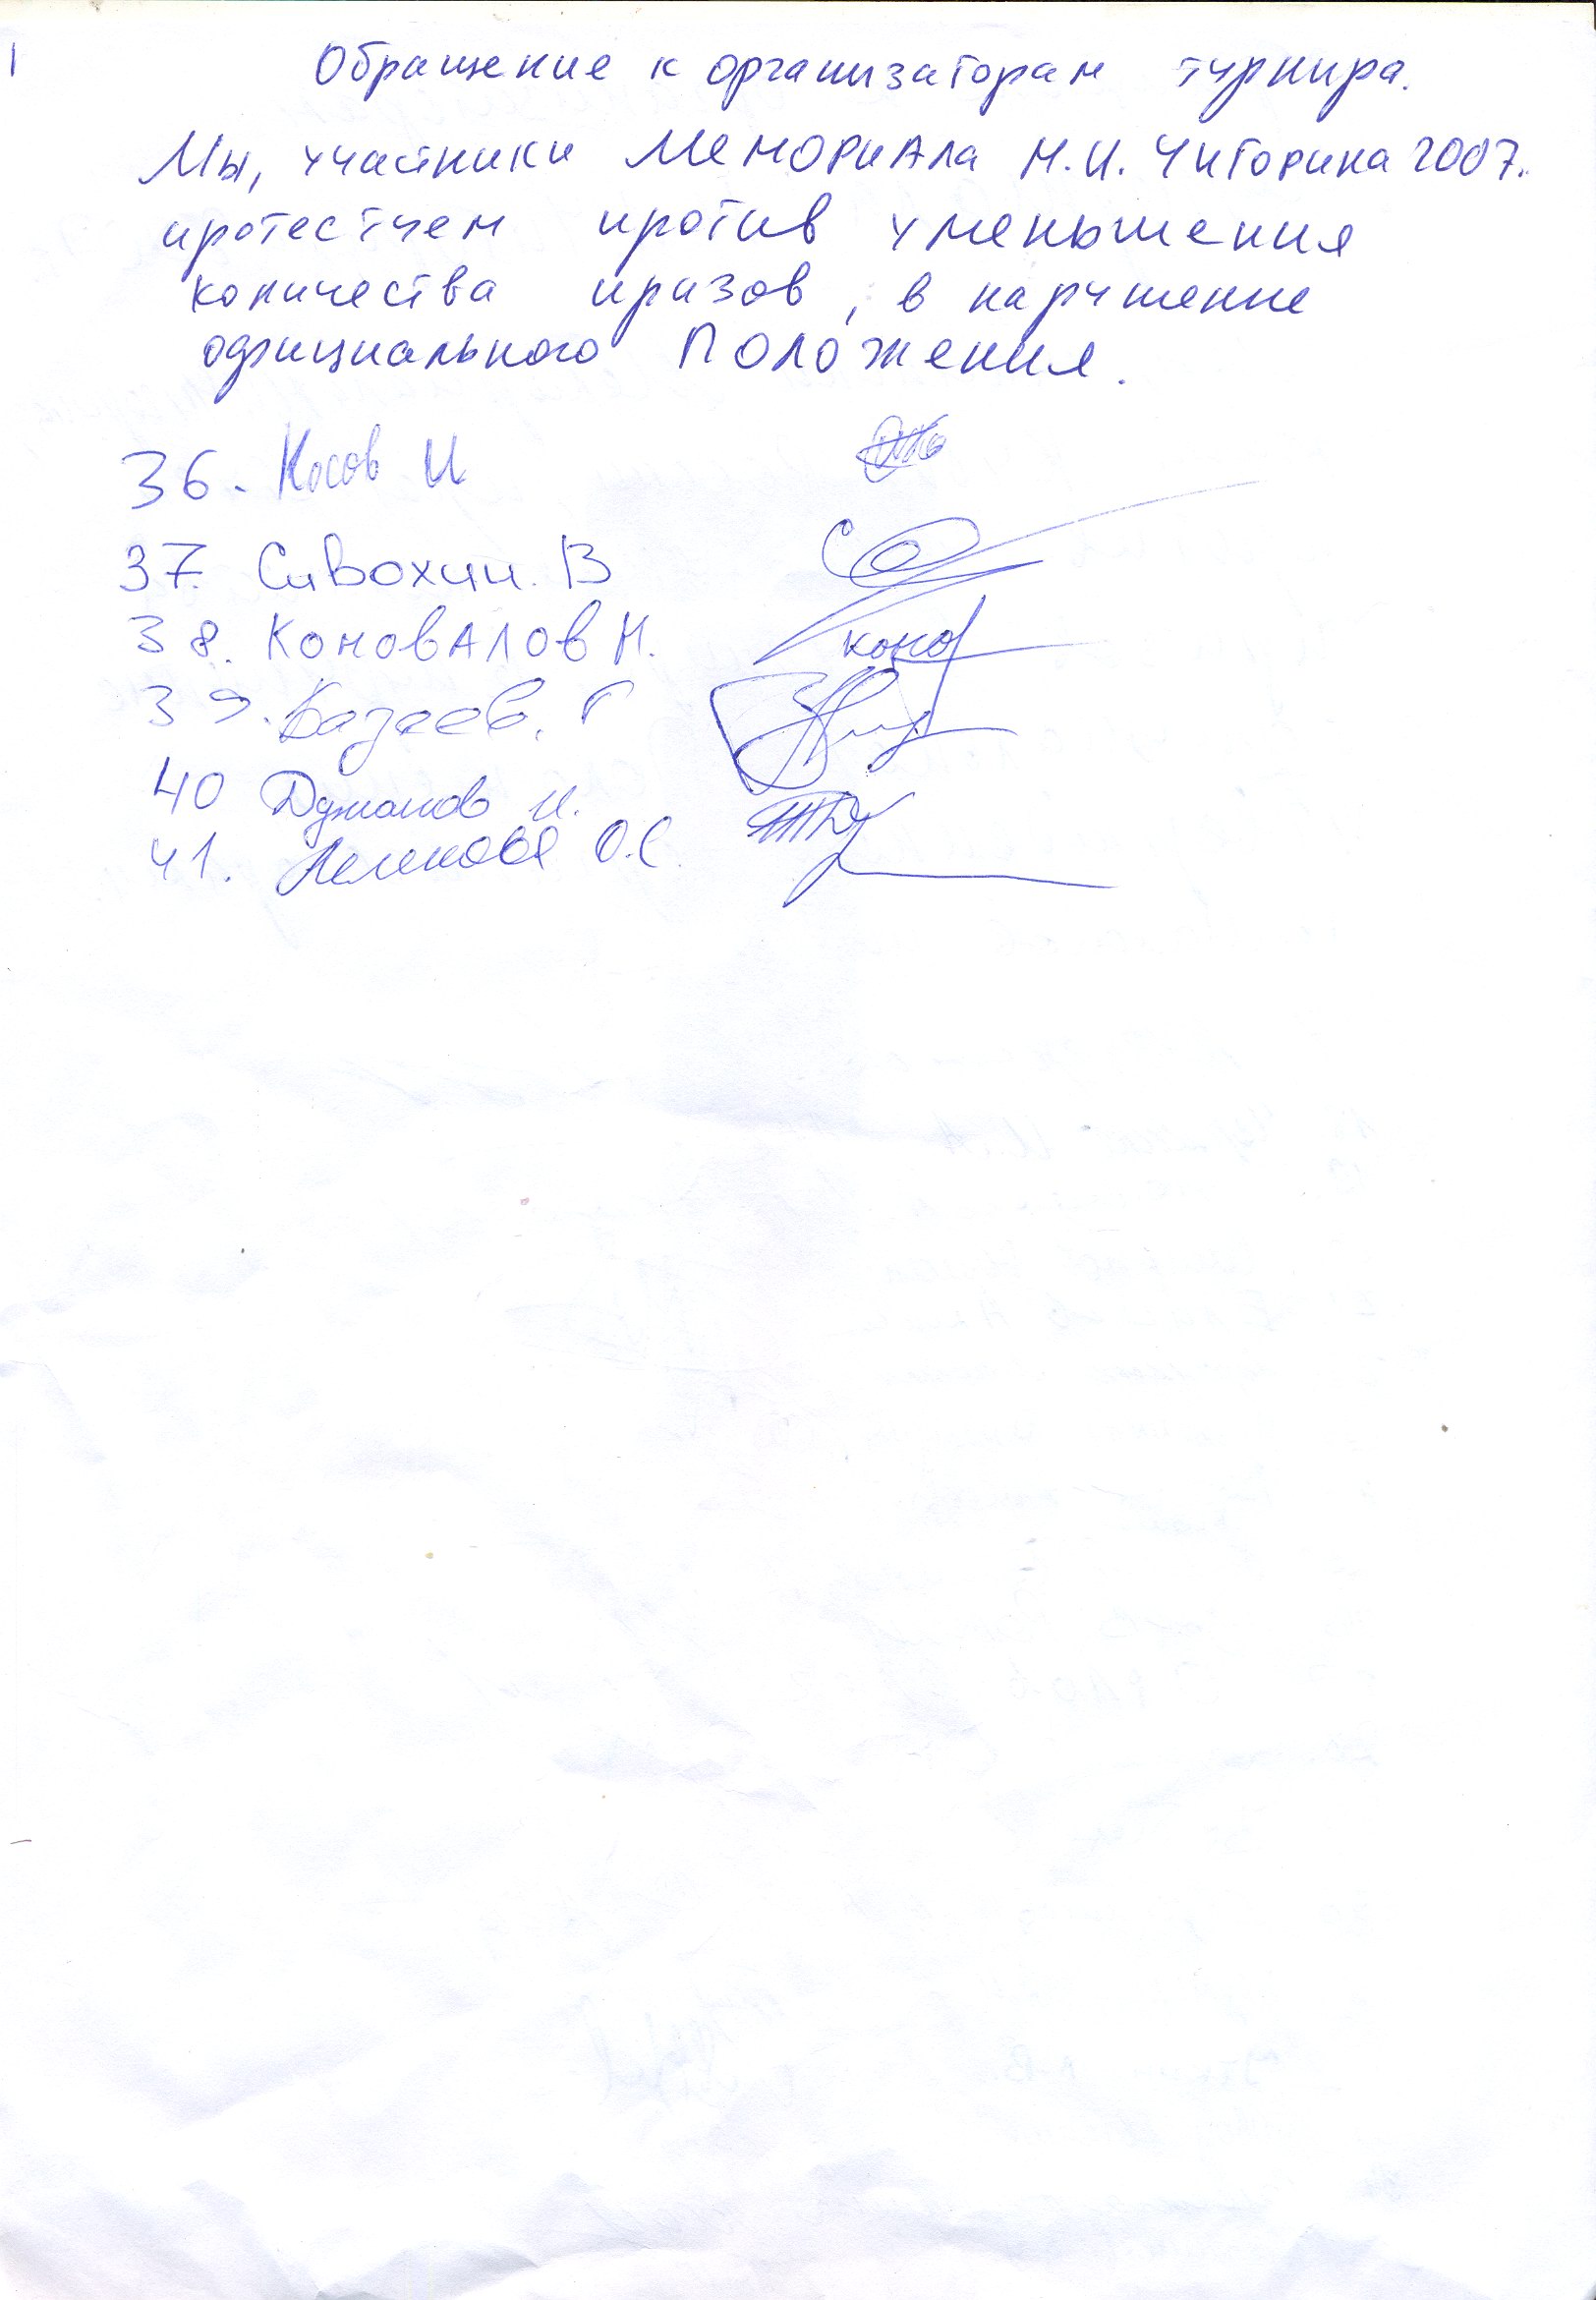 Обращение к организаторам турнира.
Мы, участники Мемориала М.И. Чигорина 2007г.
протестуем против уменьшения
количества призов, в нарушение
официального Положения.
36. Носов И
37. Сивохин. В
38. Коновалов Н.
39. Базеев. Г
40 Джамов И.
41. О.С.
коно